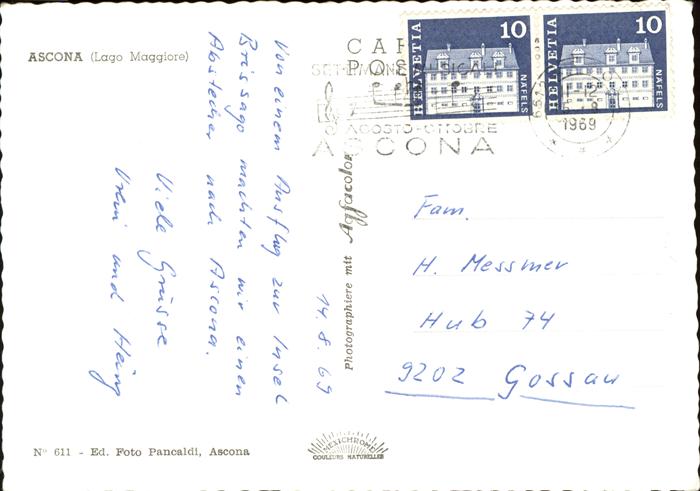 ASCONA (Lago Maggiore)
14. 8. 69
Von einem Ausflug zur Insel
Brissago machten wir einen
Abstecher nach Ascona.
Viele Grüsse
und Heinz
Nº 611 - Ed. Foto Pancaldi, Ascona
Photographiere mit Agfacolor
MEXICHROME
COULEURS NATURELLES
HELVETIA 10 NÄFELS
HELVETIA 10 NÄFELS
AGOSTO-OTTOBRE
ASCONA
1969
Fam.
H. Messmer
Hub 74
9202 Gossau